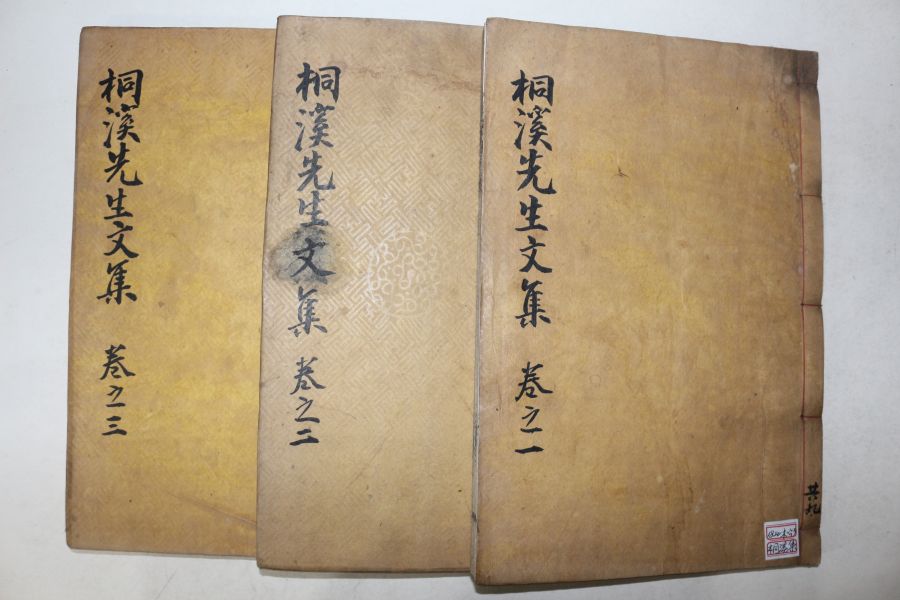 桐溪先生文集 卷之一
共九
桐溪集
桐溪先生文集 卷之二
桐溪先生文集 卷之三